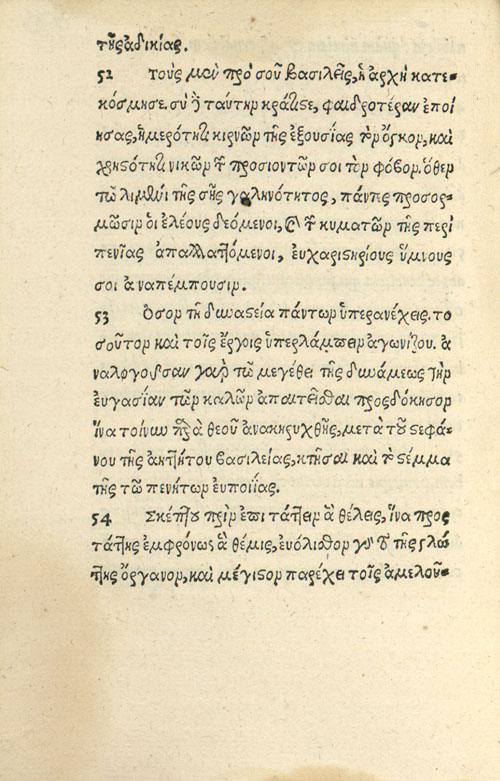 τοῦς ἀδικίας.
52 Τοὺς μὲν πρό σου βασιλεῖς, ἡ ἀρχὴ κατε-
κόσμησε. σὺ ἢ ταύτην κράτιςε, φαιδροτέραν ἐποί
ησας, ἡμερότητι κιρνῶν τῆς ἐξουσίας τὸν ὄγκον, καὶ
χρηςότητι νικῶν τ̄ προσιοντῶν σοι τὸν φόβον. ὅθεν
τῶ λιμένι τῆς σῆς γαληνότητος, πάντες προσορ-
μῶσιν οἱ ἐλέους δεόμενοι, καὶ τ̄ κυματῶν τῆς περὶ
πενίας ἀπαλλαττόμενοι, εὐχαριςηρίους ὕμνους
σοι ἀναπέμπουσιν.
53 Ὅσον τῇ δυναςεία πάντων ὑπερανέχεις. το
σοῦτον καὶ τοῖς ἔργοις ὑπερλάμπειν ἀγωνίζου. ἀ
ναλογοῦσαν γὰρ τῶ μεγέθει τῆς δυνάμεως τὴν
εὐγασίαν τῶν καλῶν ἀπαιτεῖσθαι προςδόκησον
ἵνα τοίνυν παρὰ θεοῦ ἀνακηρυχθῇς, μετὰ τοῦ ςεφά-
νου τῆς ἀηττήτου βασιλείας, κτῆσαι καὶ τὸ ςέμμα
τῆς τῶ πενήτων εὐποιΐας.
54 Σκέπτου πρὶν ἐπιτάττειν ἃ θέλεις, ἵνα προς
τάττης ἐμφρόνως ἃ θέμις, εὐόλισθον γὰρ τὸ τῆς γλώ
ττης ὄργανον, καὶ μέγιςον παρέχει τοῖς ἀμελοῦ-